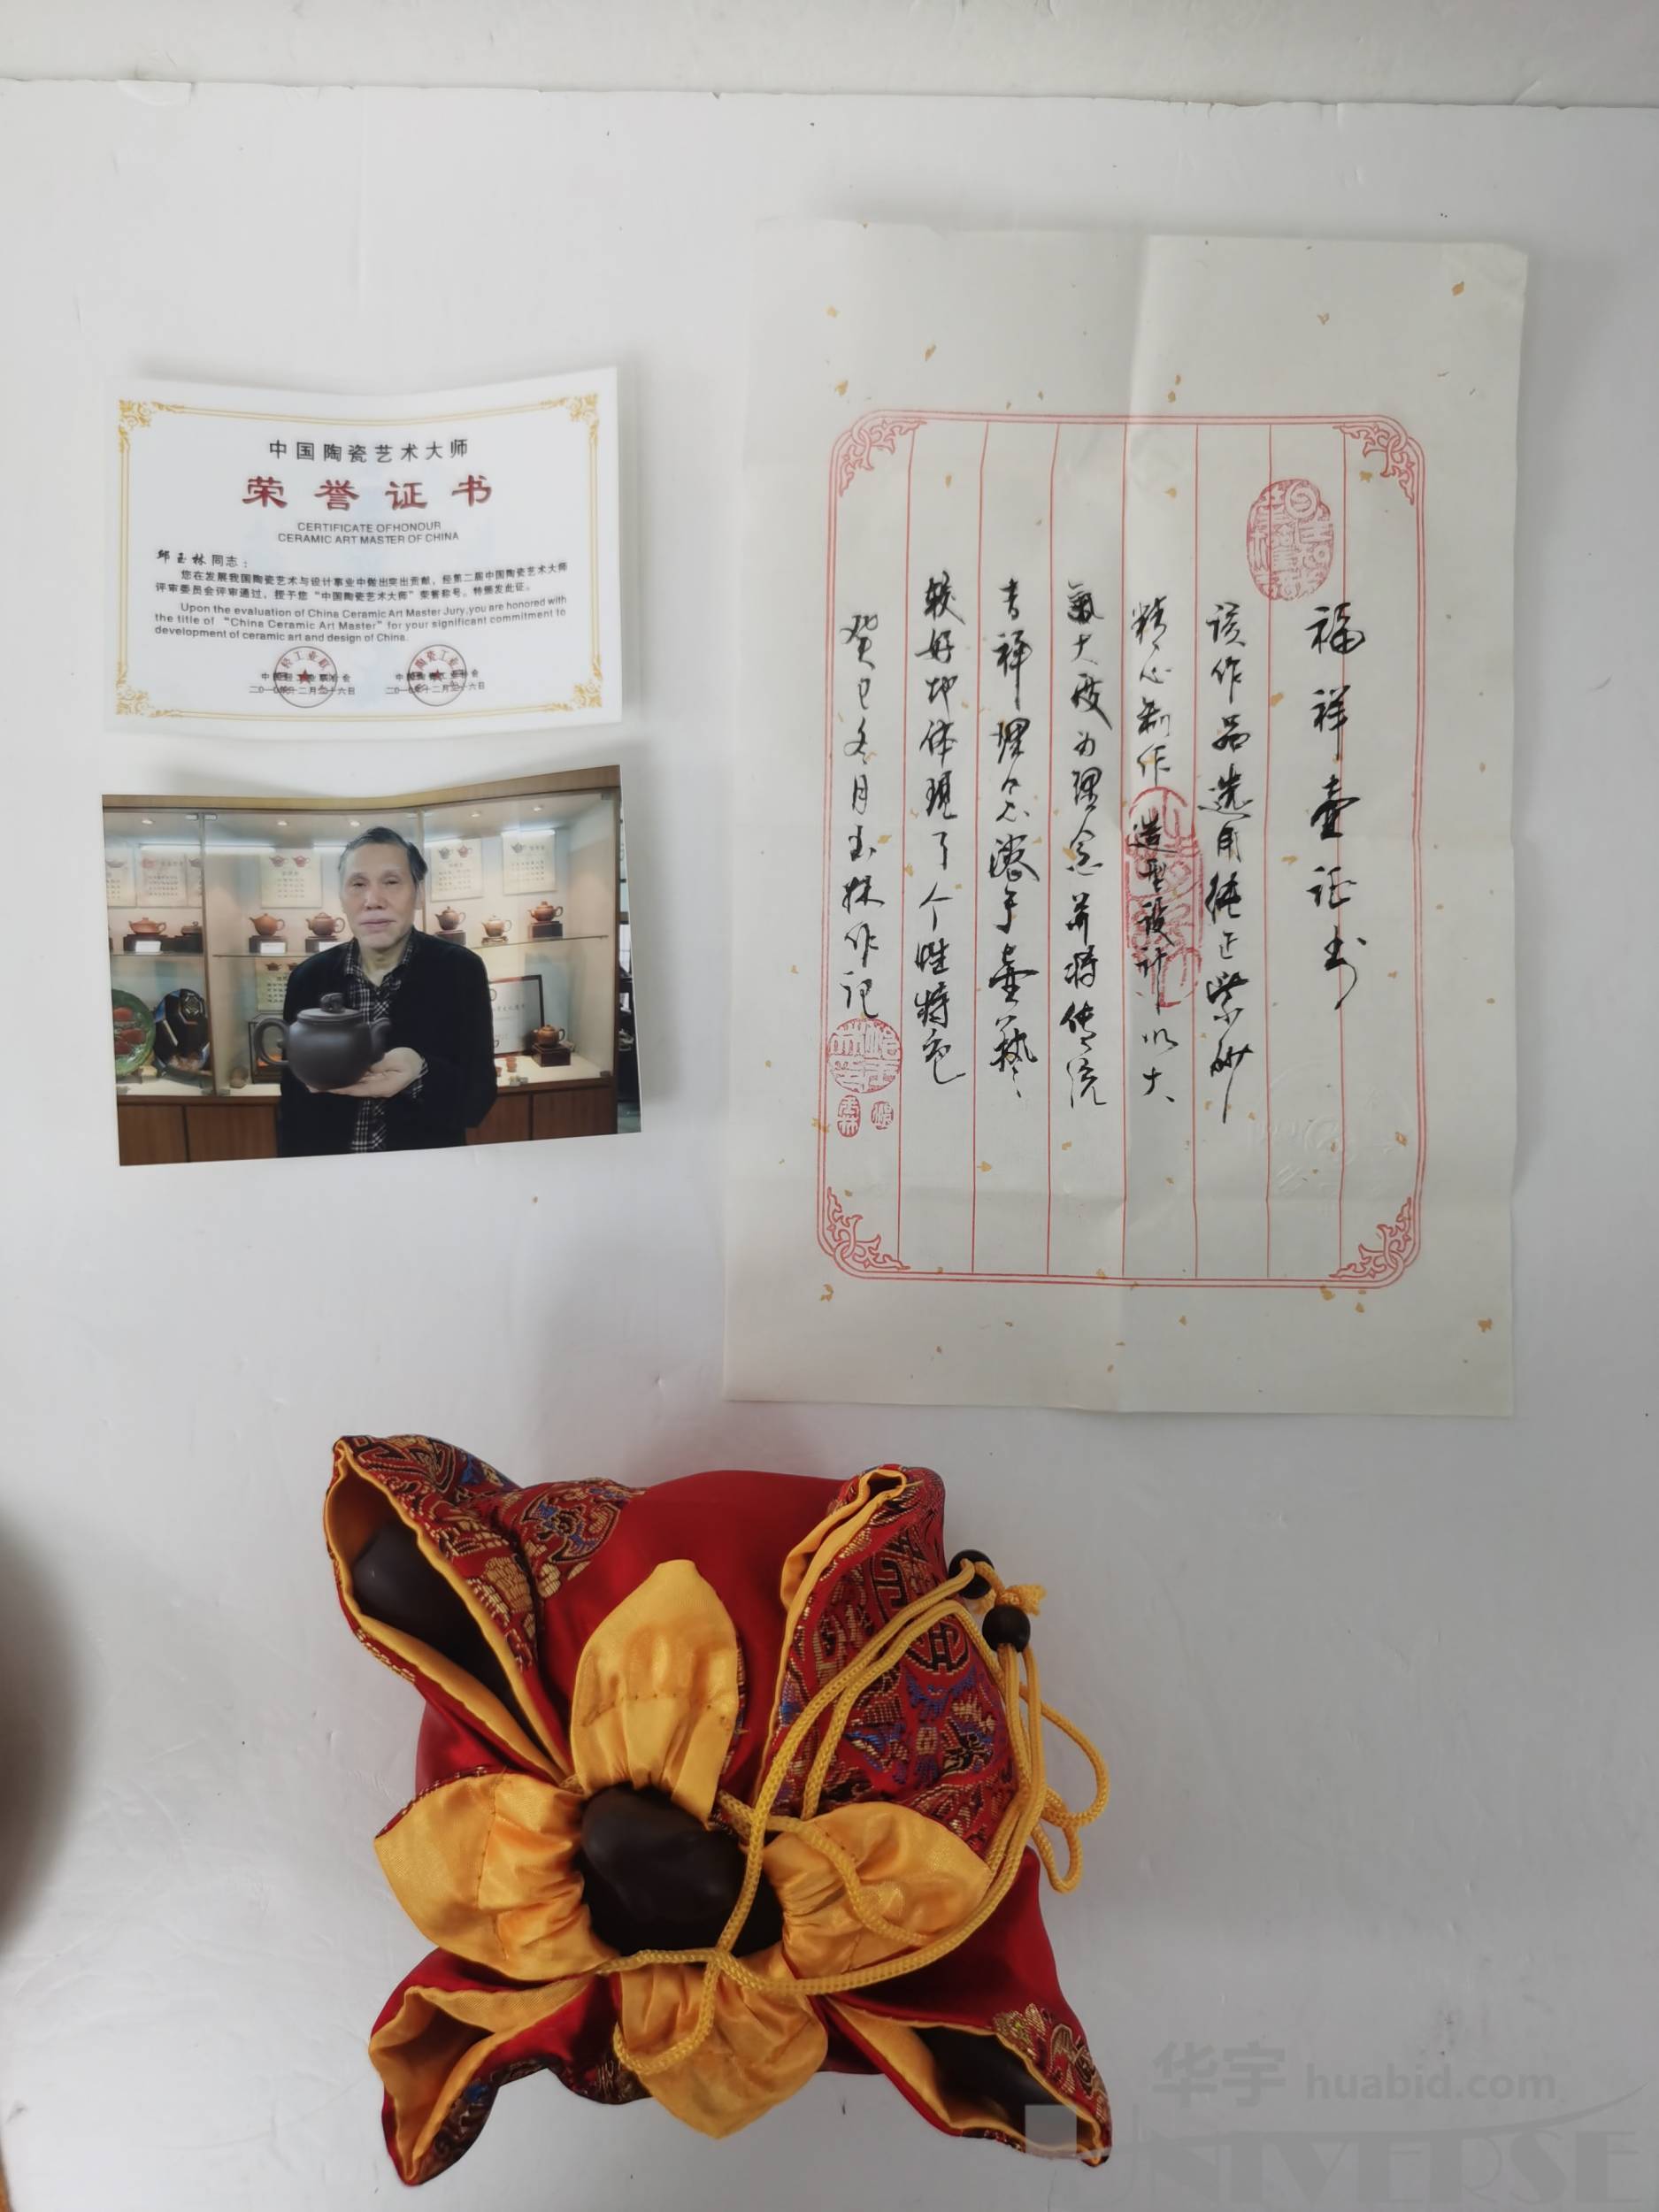 中国陶瓷艺术大师
荣誉证书
CERTIFICATE OF HONOUR
CERAMIC ART MASTER OF CHINA
邱玉林同志：
您在发展我国陶瓷艺术与设计事业中做出突出贡献，经第二届中国陶瓷艺术大师
评审委员会评审通过，授予您“中国陶瓷艺术大师”荣誉称号。特颁发此证。
Upon the evaluation of China Ceramic Art Master Jury,you are honored with
the title of “China Ceramic Art Master” for your significant commitment to
development of ceramic art and design of China.
福祥壶证书
该作品选用纯正紫砂
精心制作造型设计以大
氣大度为理念并将传统
吉祥理念浓于壶藝
较好地体现了个性特色
癸巳冬月玉林作记
华宇 huabid.com
NIVERSE